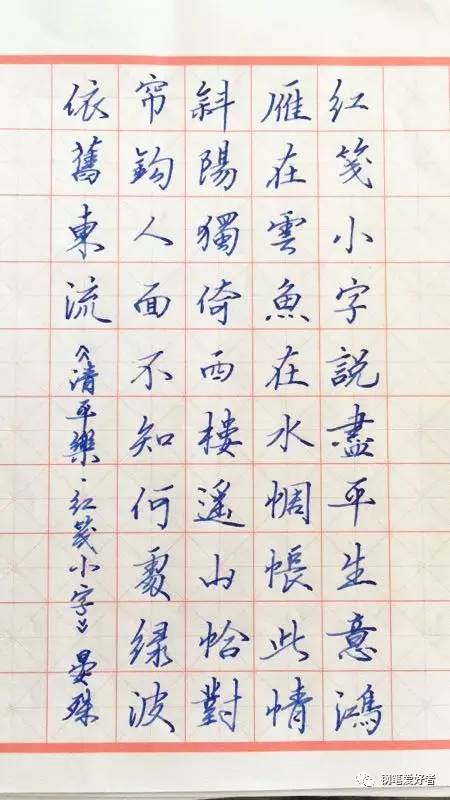 红笺小字説盡平生意鴻
雁在雲魚在水惆悵此情
斜陽獨倚西樓遥山恰對
帘鈎人面不知何處绿波
依舊東流《清平樂·红笺小字》晏殊
钢笔爱好者